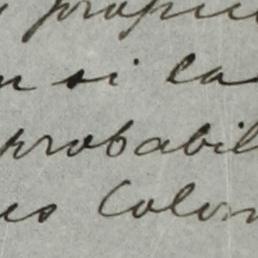 propie
n si la
probabil
es Colon